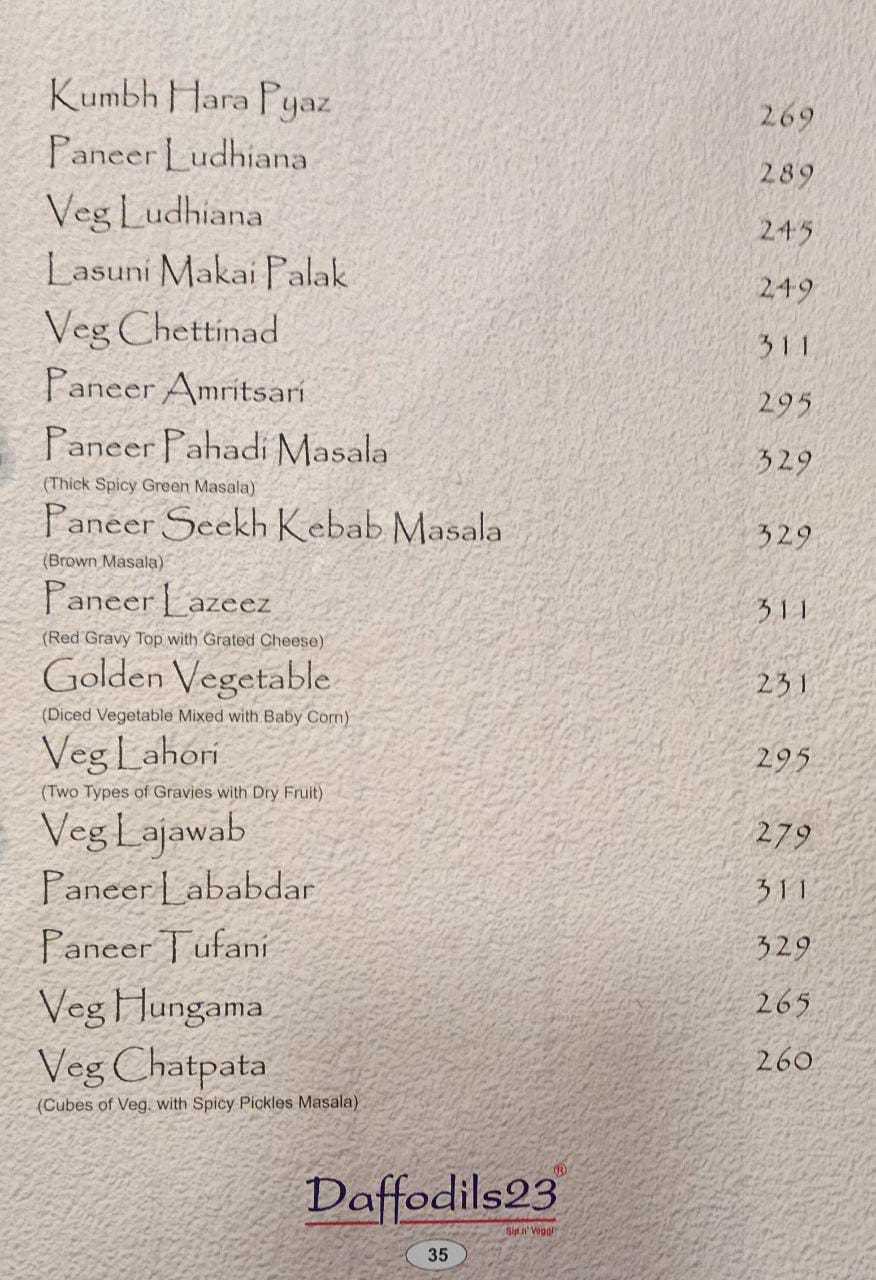 Kumbh Hara Pyaz 269
Paneer Ludhiana 289
Veg Ludhiana 245
Lasuni Makai Palak 249
Veg Chettinad 311
Paneer Amritsari 295
Paneer Pahadi Masala 329
(Thick Spicy Green Masala)
Paneer Seekh Kebab Masala 329
(Brown Masala)
Paneer Lazeez 311
(Red Gravy Top with Grated Cheese)
Golden Vegetable 231
(Diced Vegetable Mixed with Baby Corn)
Veg Lahori 295
(Two Types of Gravies with Dry Fruit)
Veg Lajawab 279
Paneer Lababdar 311
Paneer Tufani 329
Veg Hungama 265
Veg Chatpata 260
(Cubes of Veg. with Spicy Pickles Masala)
Daffodils23®
Sip n' Veggi
35